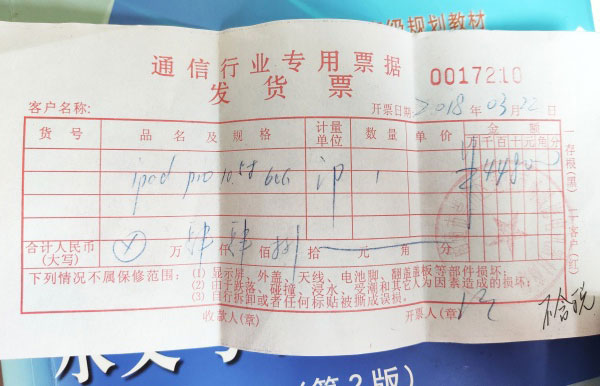 级规划教材
通信行业专用票据
发货票
0017210
客户名称: 开票日期 2018 年 03 月 22 日
货号 品名及规格 计量单位 数量 单价 金额
万 千 百 十 元 角 分
一存根(黑)
二客户(红)
ipad pro 10.5寸 64G 1P 1 ¥ 4480
合计人民币(大写) ⊗ 万 肆 仟 肆 佰 捌 拾 元 角 分
下列情况不属保修范围:
(1) 显示屏、外盖、天线、电池脚、翻盖盖板等部件损坏;
(2) 由于跌落、碰撞、浸水、受潮和其它人为因素造成的损坏;
(3) 自行拆卸或者任何标贴被撕成误损。
收款人(章) 开票人(章)
不含税
(第2版)